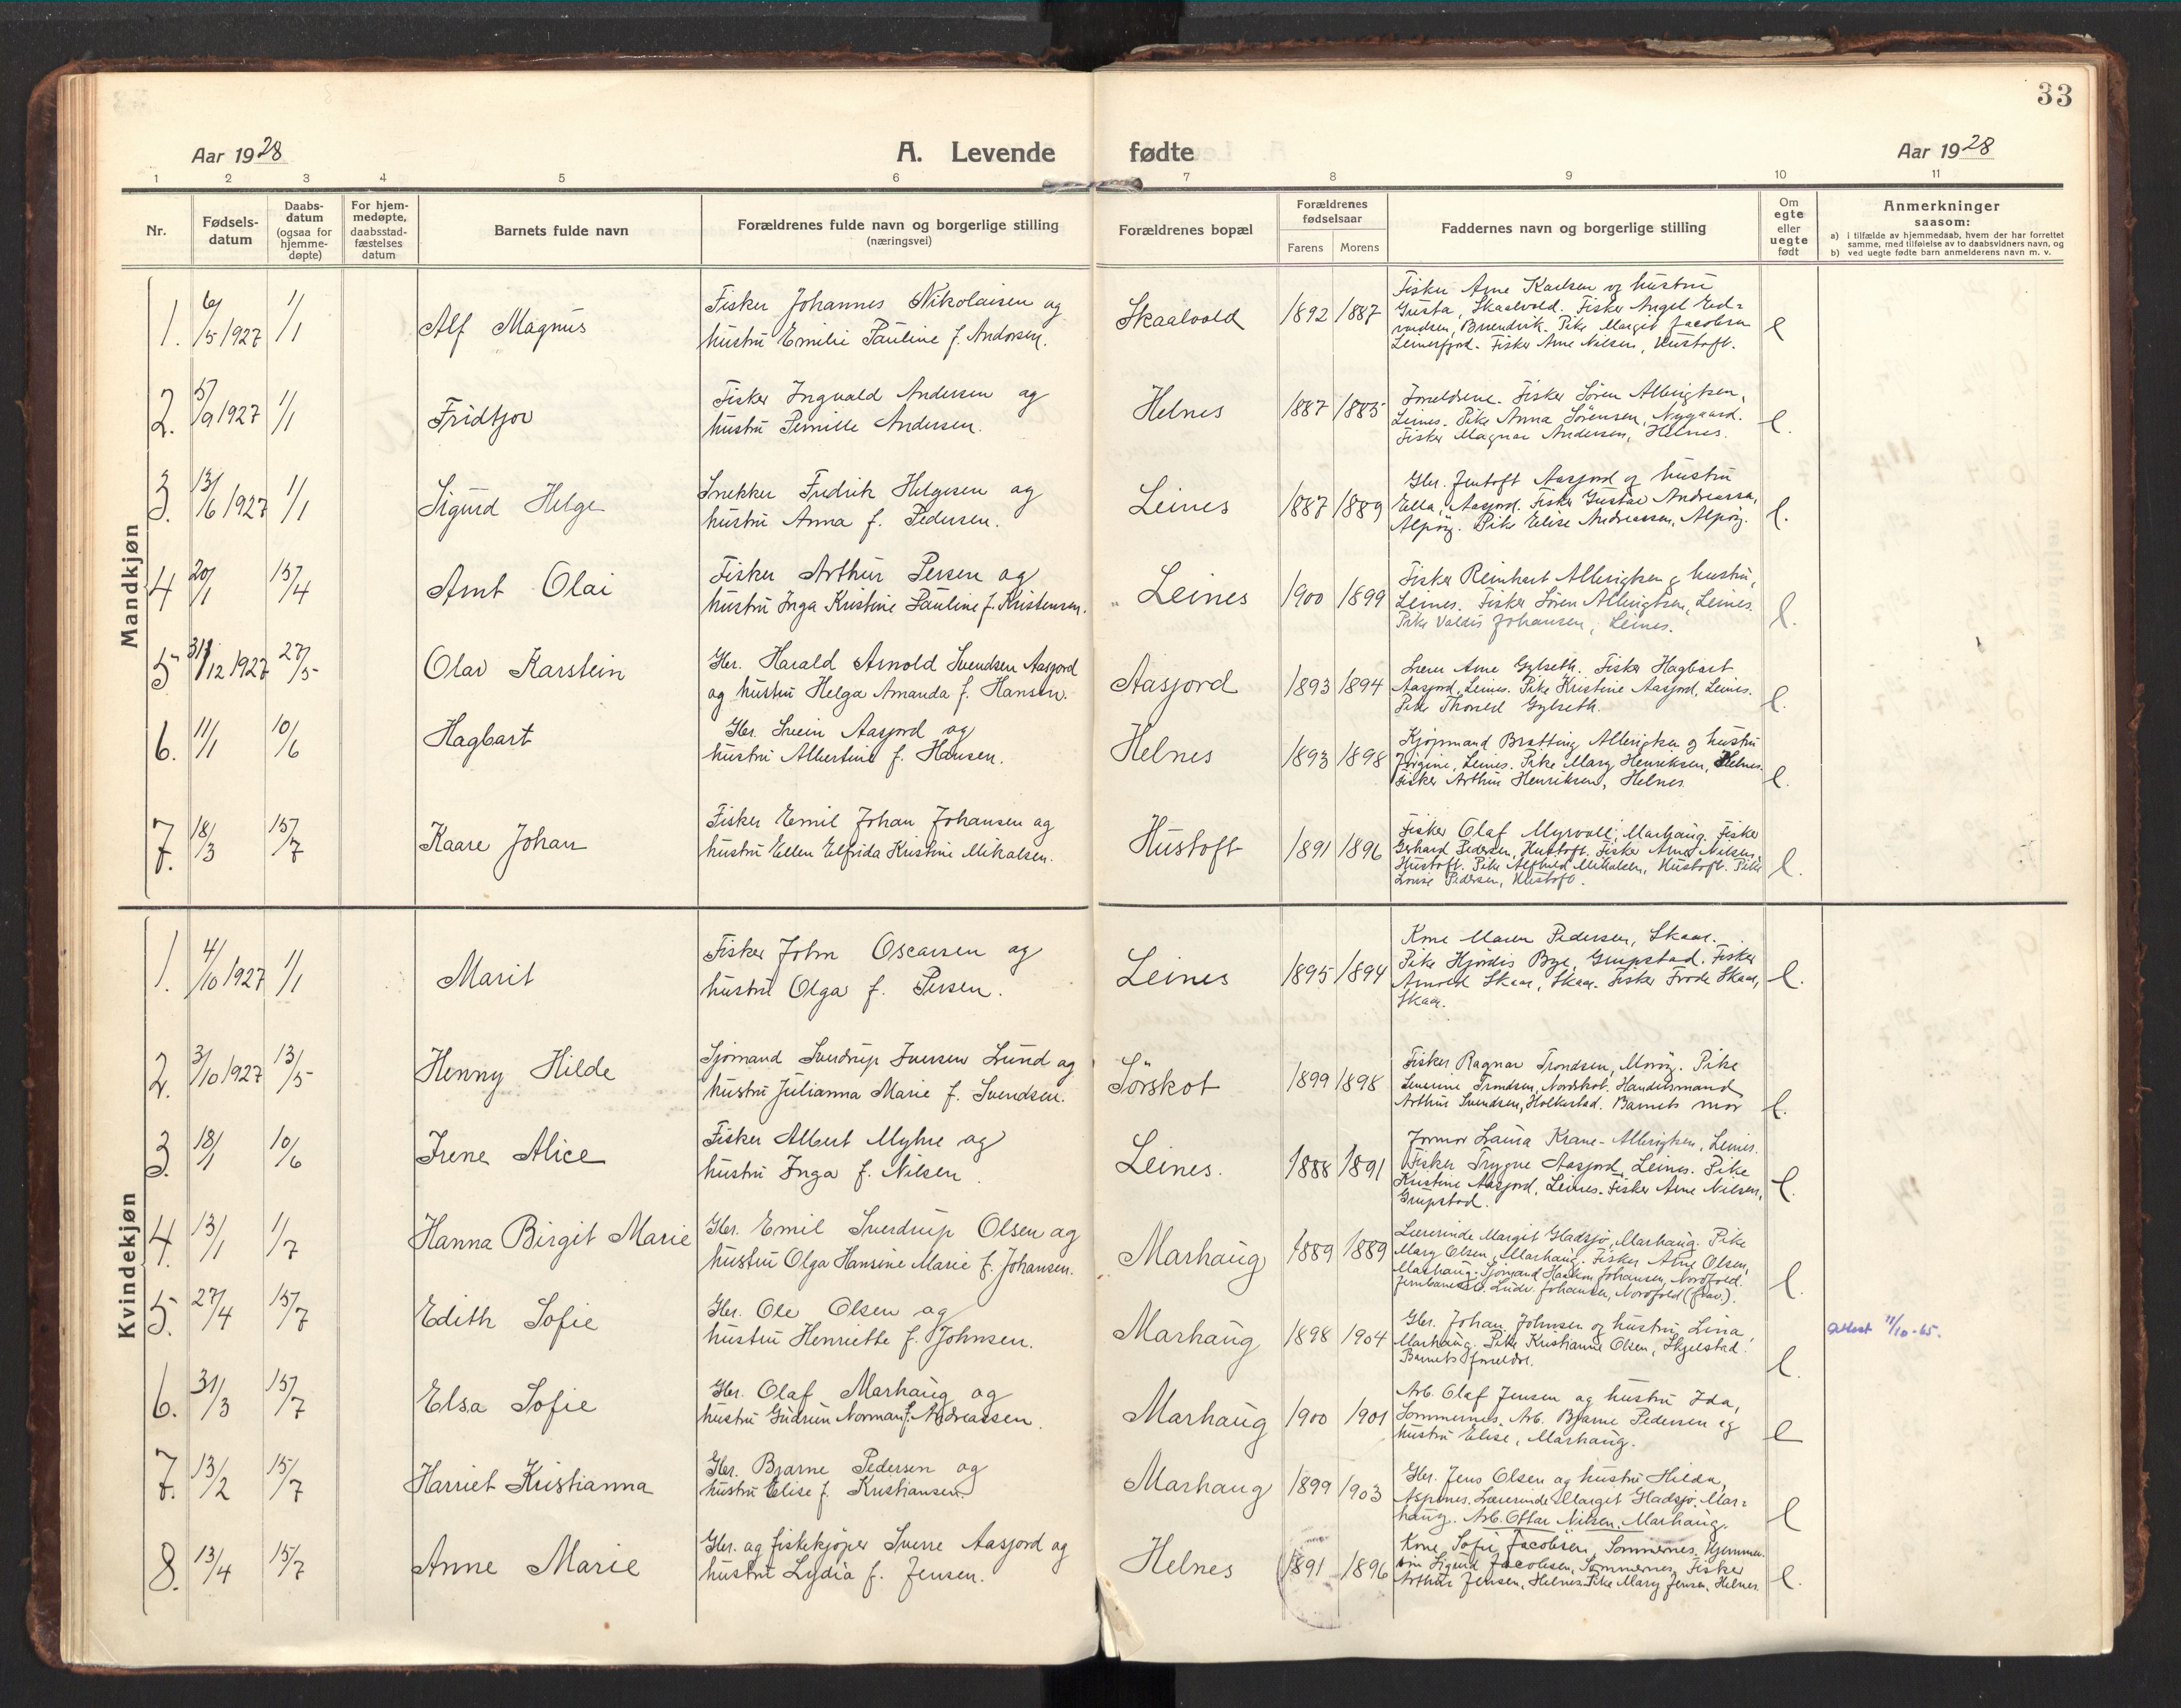 33
Aar 1928
A. Levende fødte
Aar 1928
1 2 3 4 5 6 7 8 9 10 11
Nr.
Fødsels-
datum
Daabs-
datum
(ogsaa for
hjemme-
døpte)
For hjem-
medøpte,
daabsstad-
fæstelses
datum
Barnets fulde navn
Forældrenes fulde navn og borgerlige stilling
(næringsvei)
Forældrenes bopæl
Forældrenes
fødselsaar
Farens Morens
Faddernes navn og borgerlige stilling
Om
egte
eller
uegte
født
Anmerkninger
saasom:
a) i tilfælde av hjemmedaab, hvem der har forrettet
samme, med tilføielse av to daabsvidners navn, og
b) ved uegte fødte barn anmelderens navn m. v.
Mandkjøn
1. 6/5 1927 1/1 Alf Magnus
Fisker Johannes Nikolaisen og
hustru Emilie Pauline f. Andorsen.
Skaalvold 1892 1887
Fisker Arne Karlsen og hustru
Gusta, Skaalvold. Fisker Angel Ed=
vardsen, Brændvik. Pike Margit Jacobsen
Leinesfjord. Fisker Arne Nilsen, Hustoft.
e
2. 5/9 1927 1/1 Fridtjov
Fisker Ingvald Andersen og
hustru Pernille Andersen.
Helnes 1887 1885
Foreldrene. Fisker Sören Albrigtsen,
Leines. Pike Anna Sörensen, Nygaard.
Fisker Magnar Andersen, Helnes.
e.
3. 13/6 1927 1/1 Sigurd Helge
Snekker Fredrik Helgesen og
hustru Anna f. Pedersen.
Leines 1887 1889
Gbr. Jentoft Aasjord og hustru
Ella, Aasjord. Fisker Gustav Andreassen,
Alpöy. Pike Elise Andreassen, Alpöy.
e.
4 20/1 15/4 Arnt Olai
Fisker Arthur Persen og
hustru Inga Kristine Pauline f. Kristensen.
Leines 1900 1899
Fisker Reinhart Albrigtsen og hustru,
Leines. Fisker Sören Albrigtsen, Leines.
Pike Valdis Johansen, Leines.
e.
5 31/12 1927 27/5 Olav Karstein
Gbr. Harald Arnold Svendsen Aasjord
og hustru Helga Amanda f. Hansen.
Aasjord 1893 1894
Lærer Arne Gylseth. Fisker Hagbart
Aasjord, Leines. Pike Kristine Aasjord, Leines.
Pike Thorhild Gylseth.
e.
6. 11/1 10/6 Hagbart
Gbr. Svein Aasjord og
hustru Albertine f. Hansen.
Helnes 1893 1898
Kjöpmand Bratting Albrigtsen og hustru
Jörgine, Leines. Pike Mary Henriksen, Helnes.
Fisker Arthur Henriksen, Helnes.
e.
7. 18/3 15/7 Kaare Johan
Fisker Emil Johan Johansen og
hustru Ellen Elfrida Kristine Mikalsen.
Hustoft 1891 1896
Fisker Olaf Myrvoll, Marhaug. Fisker
Gerhard Pedersen, Hustoft. Fisker Arne Nilsen,
Hustoft. Pike Alfhild Mikalsen, Hustoft. Pike
Lovise Pedersen, Hustoft.
e.
Kvindekjøn
1. 4/10 1927 1/1 Marit
Fisker John Oscarsen og
hustru Olga f. Persen.
Leines 1895 1894
Kone Maren Pedersen, Skaar.
Pike Hjördis Bye, Grupstad. Fisker
Arnold Skaar, Skaar. Fisker Frode Skaar,
Skaar.
e.
2. 3/10 1927 13/5 Henny Hilde
Sjömand Sverdrup Iversen Lund og
hustru Julianna Marie f. Svendsen.
Sörskot 1899 1898
Fisker Ragnar Trondsen, Moröy. Pike
Leverine Trondsen, Nordskot. Handelsmand
Arthur Svendsen, Holkestad. Barnets mor
e.
3. 18/1 10/6 Irene Alice
Fisker Albert Myhre og
hustru Inga f. Nilsen.
Leines. 1888 1891
Jormor Laura Krane-Albrigtsen, Leines.
Fisker Trygve Aasjord, Leines. Pike
Kristine Aasjord, Leines. Fisker Arne Nilsen,
Grupstad.
e.
4. 13/1 1/7 Hanna Birgit Marie
Gbr. Emil Sverdrup Olsen og
hustru Olga Hansine Marie f. Johansen.
Marhaug 1889 1889
Lærerinde Margit Gladsjö, Marhaug. Pike
Mary Olsen, Marhaug. Fisker Arne Olsen,
Marhaug. Sjömand Haakon Johansen, Nordfold.
Ludv. Johansen, Nordfold (frav.).
e.
5. 27/4 15/7 Edith Sofie
Gbr. Ole Olsen og
hustru Henriette f. Johnsen.
Marhaug 1898 1904
Gbr. Johan Johnsen og hustru Lina,
Marhaug. Pike Kristianne Olsen, Skjelstad.
Barnets foreldre.
e
Attest 11/10-65.
6. 31/3 15/7 Elsa Sofie
Gbr. Olaf Marhaug og
hustru Gudrun Norman f. Andreassen.
Marhaug 1900 1901
Arb. Olaf Jensen og hustru Ida,
Sommernes. Arb. Bjarne Pedersen og
hustru Elise, Marhaug.
e
7. 13/2 15/7 Harriet Kristianna
Gbr. Bjarne Pedersen og
hustru Elise f. Kristiansen.
Marhaug 1899 1903
Gbr. Jens Olsen og hustru Hilda,
Aspenes. Lærerinde Margit Gladsjö, Mar=
haug. Arb. Ottar Nilsen, Marhaug.
e
8. 13/4 15/7 Anne Marie
Gbr. og fiskekjöper Sverre Aasjord og
hustru Lydia f. Jensen.
Helnes 1891 1896
Kone Sofie Jacobsen, Sommernes. Hjemmev.
Sigurd Jacobsen, Sommernes. Fisker
Arthur Jensen, Helnes. Pike Mary Jensen, Helnes.
e.